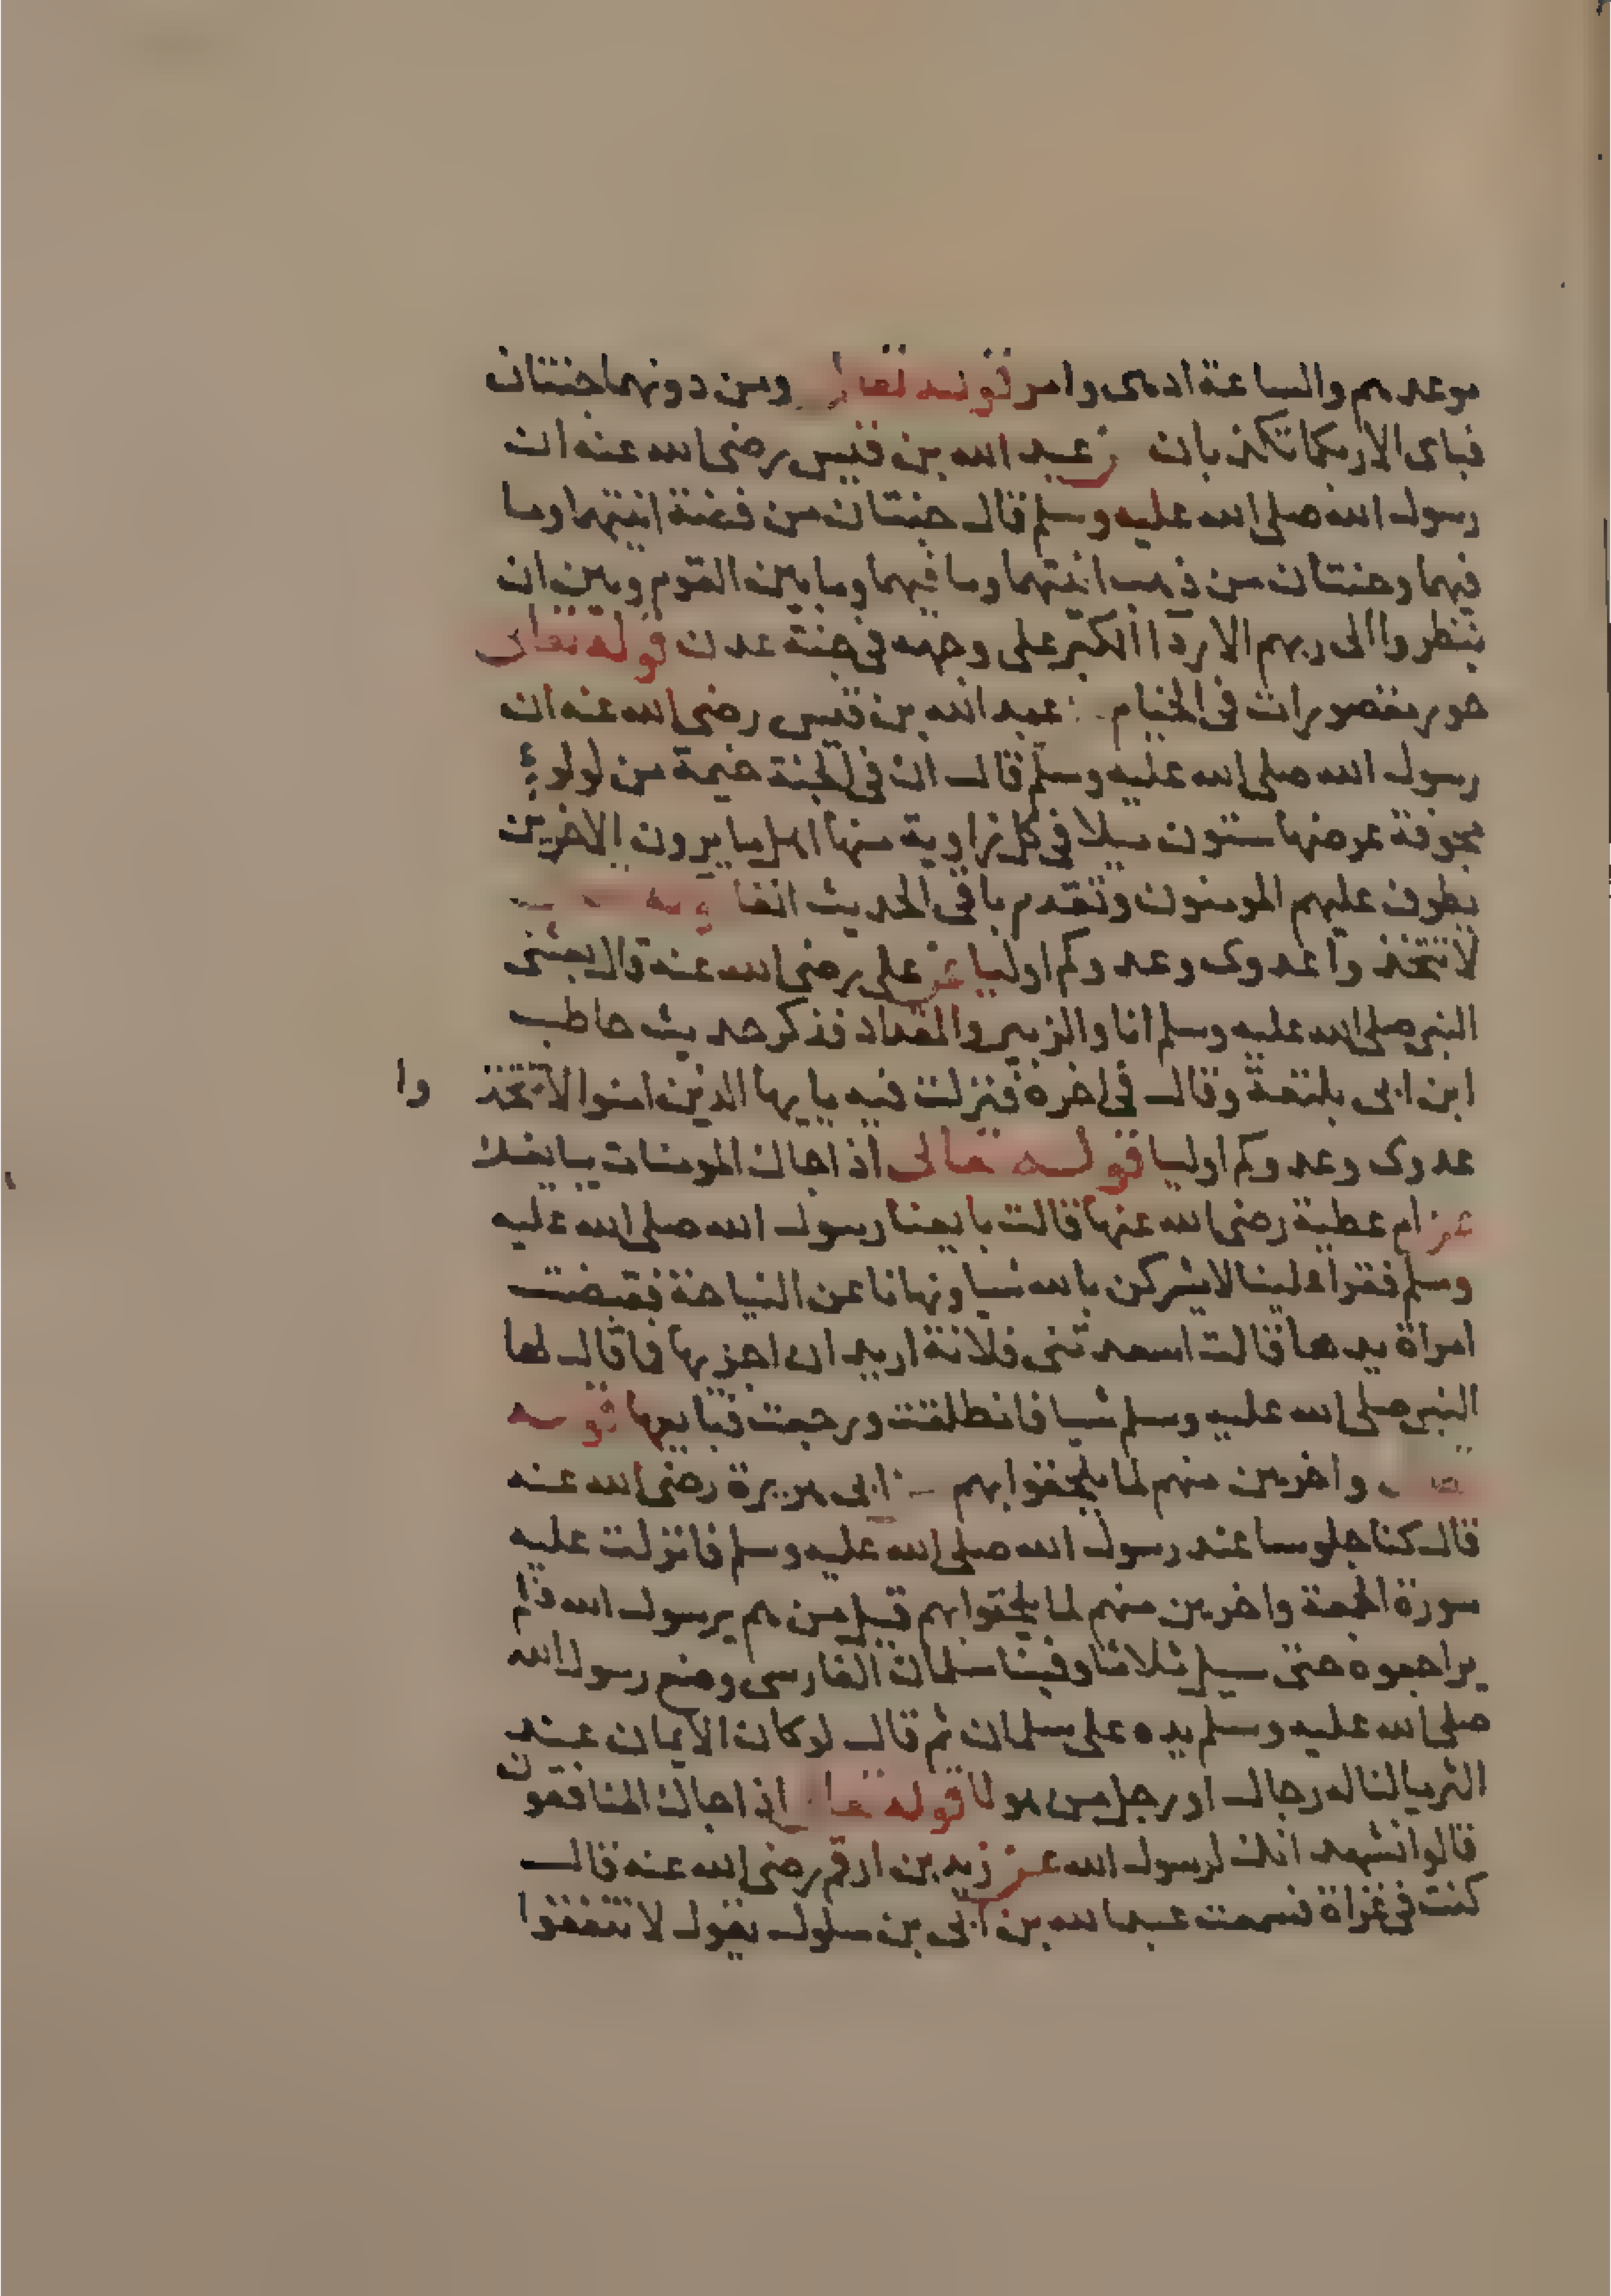 موعدهم والساعة ادهى وامر قوله تعالى ومن دونهما جنتان
فباى الاء ربكما تكذبان عن عبد الله بن قيس رضى الله عنه ان
رسول الله صلى الله عليه وسلم قال جنتان من فضة انيتهما وما
فيهما وجنتان من ذهب انيتهما وما فيهما وما بين القوم وبين ان
ينظروا الى ربهم الا رداا الكبر على وجهه فى جنة عدن قوله تعالى
حور مقصورات فى الخيام عبد الله بن قيس رضى الله عنه ان
رسول الله صلى الله عليه وسلم قال ان فى الجنة خيمة من لولوء
مجوفة عرضها ستون ميلا فى كل زاوية منها اهل ما يرون الاخرين
يطوف عليهم المومنون وتقدم باقى الحديث انفا
لا تتخذوا عدوى وعدوكم اوليا عن على رضى الله عنه قال بعثنى
النبى صلى الله عليه وسلم انا والزبير والمقداد فذكر حديث حاطب
ابن ابى بلتعة وقال فى اخره فنزلت فيه يا يها الذين امنوا لا تتخذوا
عدوى وعدوكم اوليا قوله تعالى اذا جاك المومنات يبايعنك
عن ام عطية رضى الله عنها قالت بايعنا رسول الله صلى الله عليه
وسلم فقرا علينا لا يشركن بالله شيا ونهانا عن النياحة فقبضت
امراة يدها قالت اسعدتنى فلانة اريد ان اجزيها فاقال لها
النبى صلى الله عليه وسلم شيا فانطلقت ورجعت فبايعها قوله
واخرين منهم لما يلحقوا بهم ابى هريرة رضى الله عنه
قال كنا جلوسا عند رسول الله صلى الله عليه وسلم فانزلت عليه
سورة الجمعة واخرين منهم لما يلحقوا بهم قيل من هم يرسول الله فلم
يراجعوه حتى سيل ثلاثا وفينا سلمان الفارسى وضع رسول الله
صلى الله عليه وسلم يده على سلمان ثم قال لو كان الايمان عند
الثريا لناله رجال او رجل من هولا قوله تعالى اذا جاك المنافقون
قالوا نشهد انك لرسول الله عن زيد بن ارقم رضى الله عنه قال
كنت فى غزاة فسمعت عبد الله بن ابى بن سلول يقول لا تنفقوا